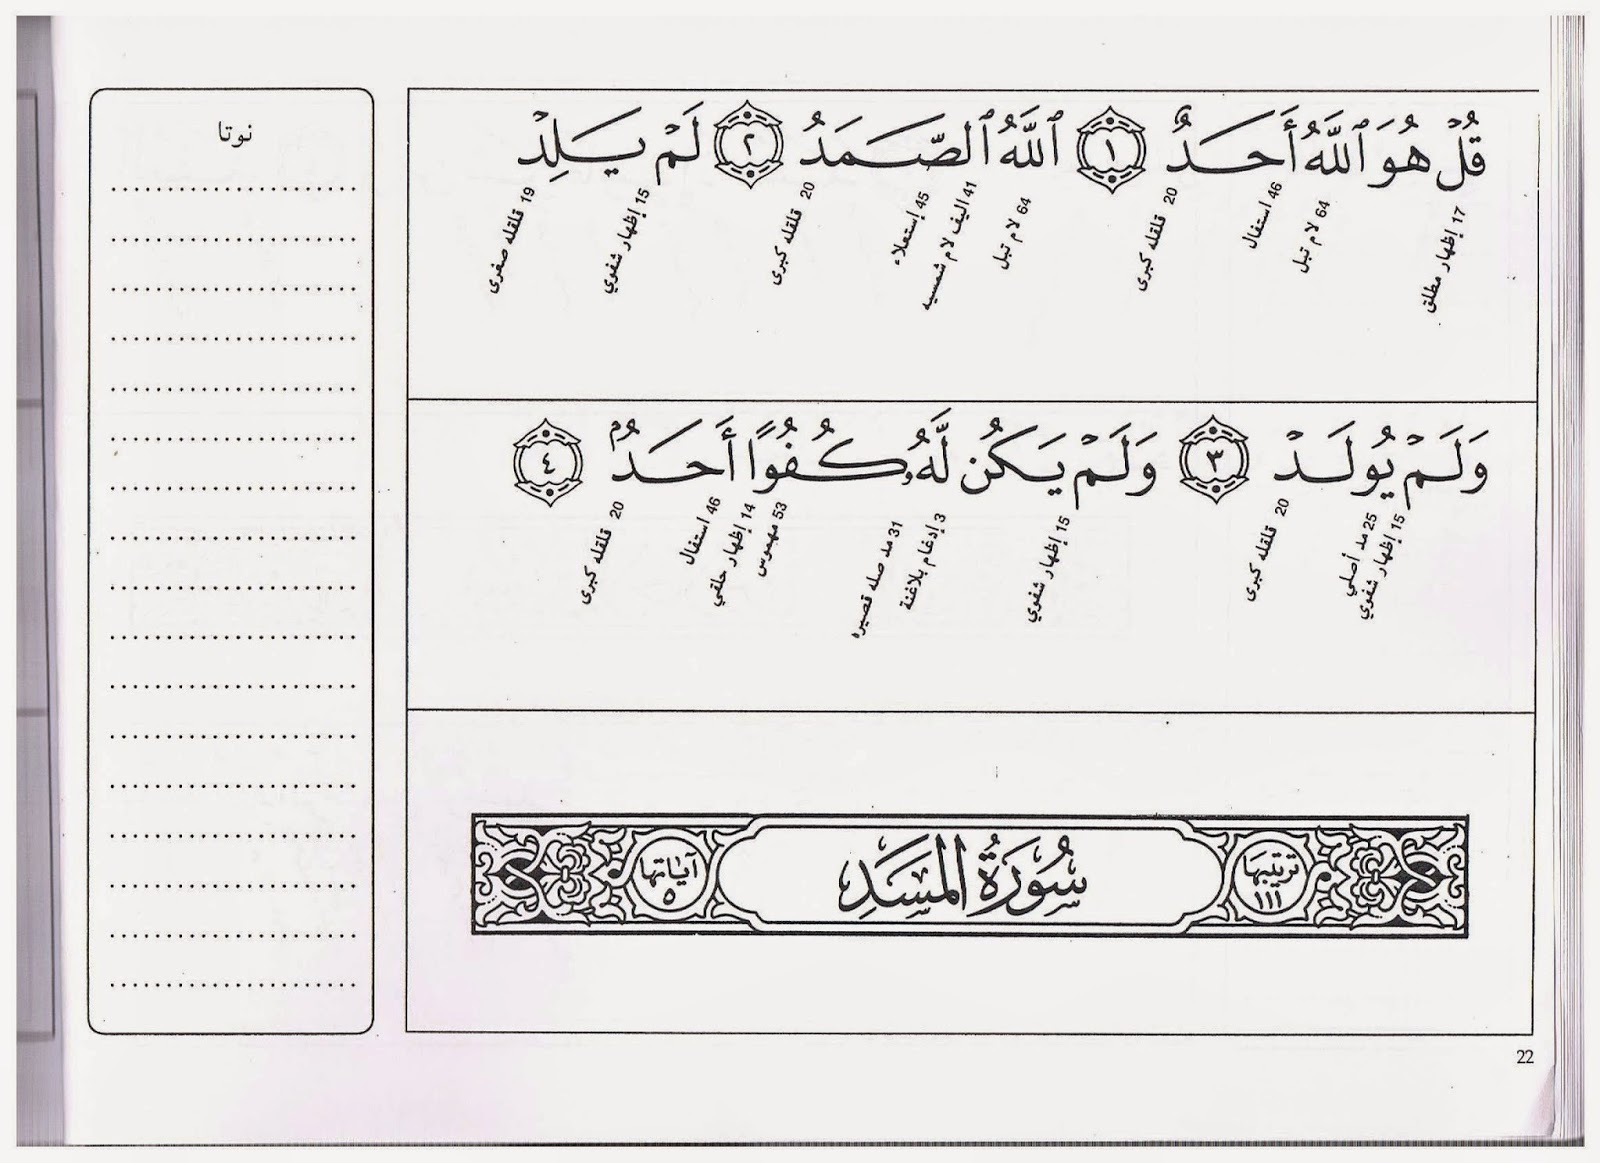 قُلْ هُوَ ٱللَّهُ أَحَدٌ ١ ٱللَّهُ ٱلصَّمَدُ ٢ لَمْ يَلِدْ
17 إظهار مطلق
64 لام تبل
46 استفال
20 قلقله كبرى
64 لام تبل
41 اليف لام شمسيه
45 إستعلاء
20 قلقله كبرى
15 إظهار شفوي
19 قلقله صغرى
وَلَمْ يُولَدْ ٣ وَلَمْ يَكُن لَّهُۥ كُفُوًا أَحَدٌۢ ٤
15 إظهار شفوي
25 مد أصلي
20 قلقله كبرى
15 إظهار شفوي
3 إدغام بلاغنة
31 مد صله قصيره
53 مهموس
14 إظهار حلقي
46 استفال
20 قلقله كبرى
ترتيبها ١١١
سُورَةُ المَسَدِ
آياتها ٥
نوتا
22